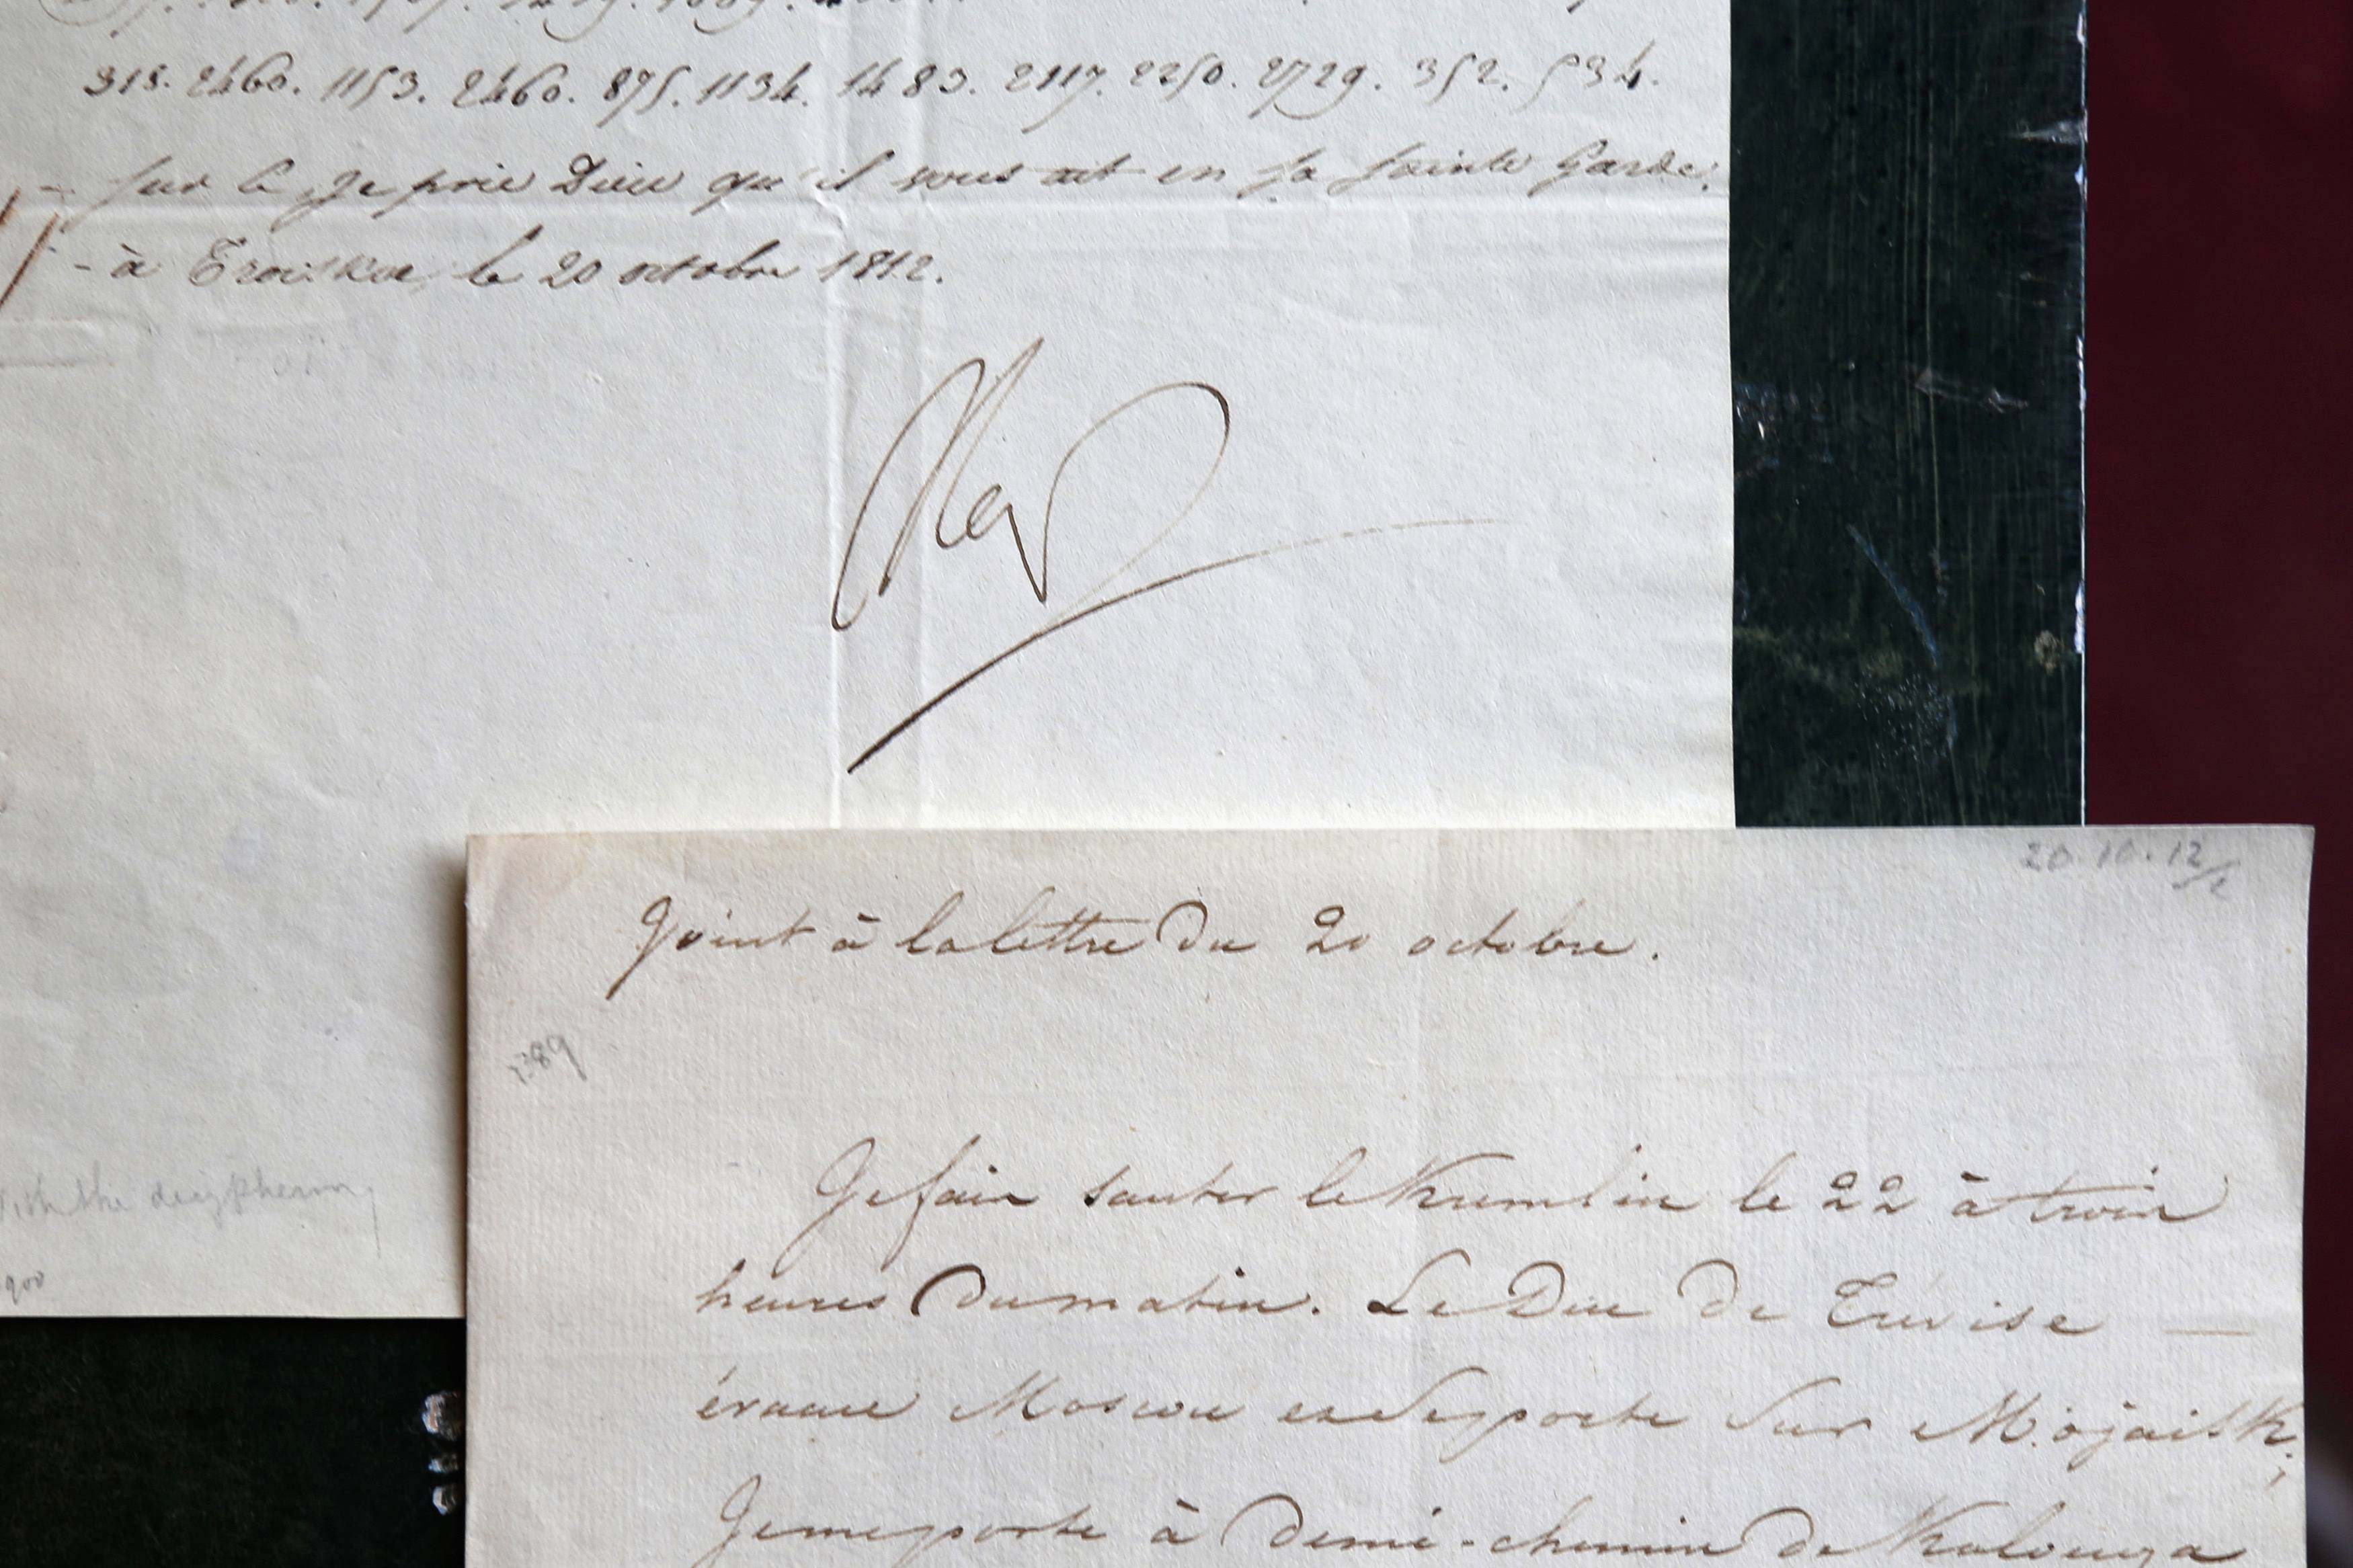 315. 2460. 1153. 2460. 875. 1134. 1483. 2117. 2250. 2729. 352. 534.
- Sur ce, je prie Dieu qu'il vous ait en sa sainte Garde.
- à Troiskoe, le 20 octobre 1812.
Nap
20.10.12/2
Joint à la lettre du 20 octobre.
Je fais sauter le Kremlin le 22 à trois
heures du matin. Le Duc de Trévise —
évacue Moscou et se porte sur Mojaïsk;
with the decyphering
900
Je me porte à demi-chemin de Kalouga